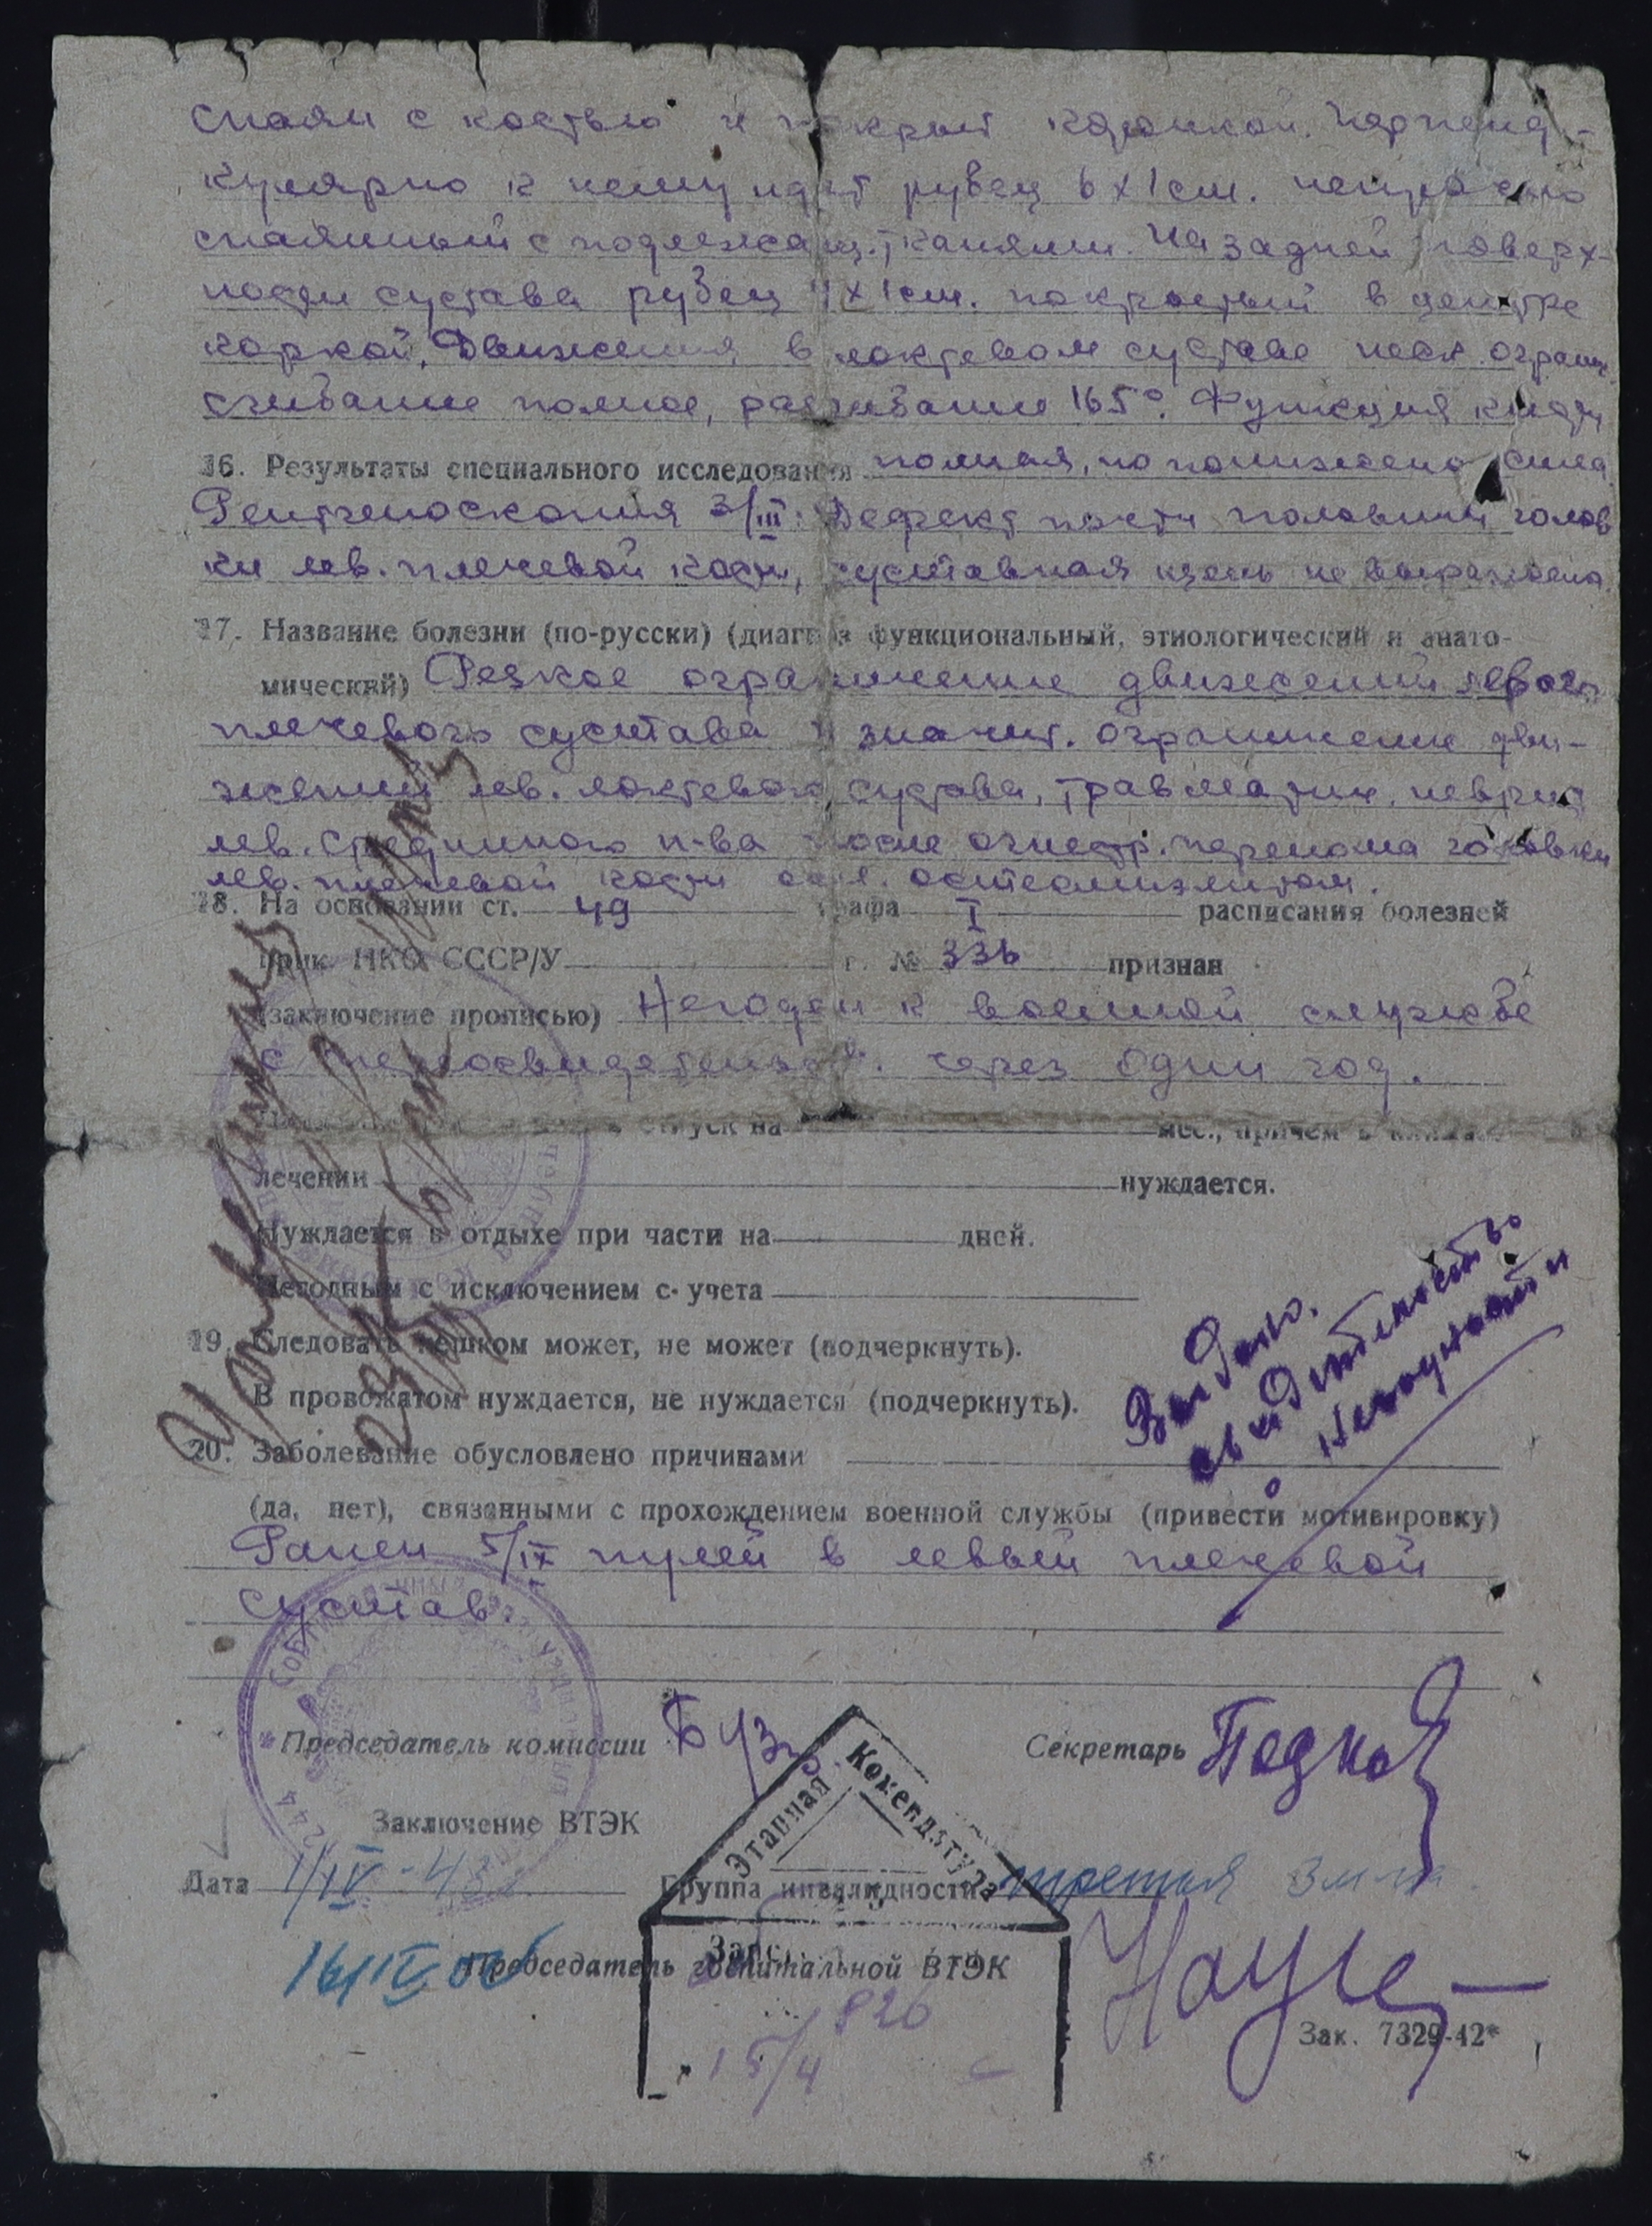 спаян с костью и покрыт корочкой. Перпенд-
кулярно к нему идет рубец 6х1см.
спаянный с подлежащ. тканями. На задней поверх-
ности сустава рубец 4х1см. покрытый в центре
коркой. Движения в локтевом суставе огранич.
сгибание полное, разгибание 165°. Функция кисти
16. Результаты специального исследования полная, но понижена сила
Рентгеноскопия 3/III: Дефект почти половины голов
ки лев. плечевой кости, суставная щель не выражена
17. Название болезни (по-русски) (диагноз функциональный, этиологический и анато-
мический) Резкое ограничение движений левого
плечевого сустава и значит. ограничение дви-
жений лев. локтевого сустава, травматич. неврит
лев. срединного н-ва после огнестр. перелома головки
лев. плечевой кости осл. остеомиэлитом.
18. На основании ст. 49 графа I расписания болезней
прик. НКО СССР/У г. № 336 признан
(заключение прописью) Негоден к военной службе
с переосвидетельств. через один год.
отпуск на мес., причем в
лечении нуждается.
Нуждается в отдыхе при части на дней.
Негодным с исключением с учета
19. Следовать пешком может, не может (подчеркнуть).
В провожатом нуждается, не нуждается (подчеркнуть).
Выдано.
свидетельство
о негодности
20. Заболевание обусловлено причинами
(да, нет), связанными с прохождением военной службы (привести мотивировку)
Ранен 5/IX пулей в левый плечевой
сустав.
Председатель комиссии Секретарь
Этапная Комендатура
Заключение ВТЭК
Дата 1/IV-43 Группа инвалидности третья
16/IV
Председатель госпитальной ВТЭК
826
15/4
Зак. 7329-42*